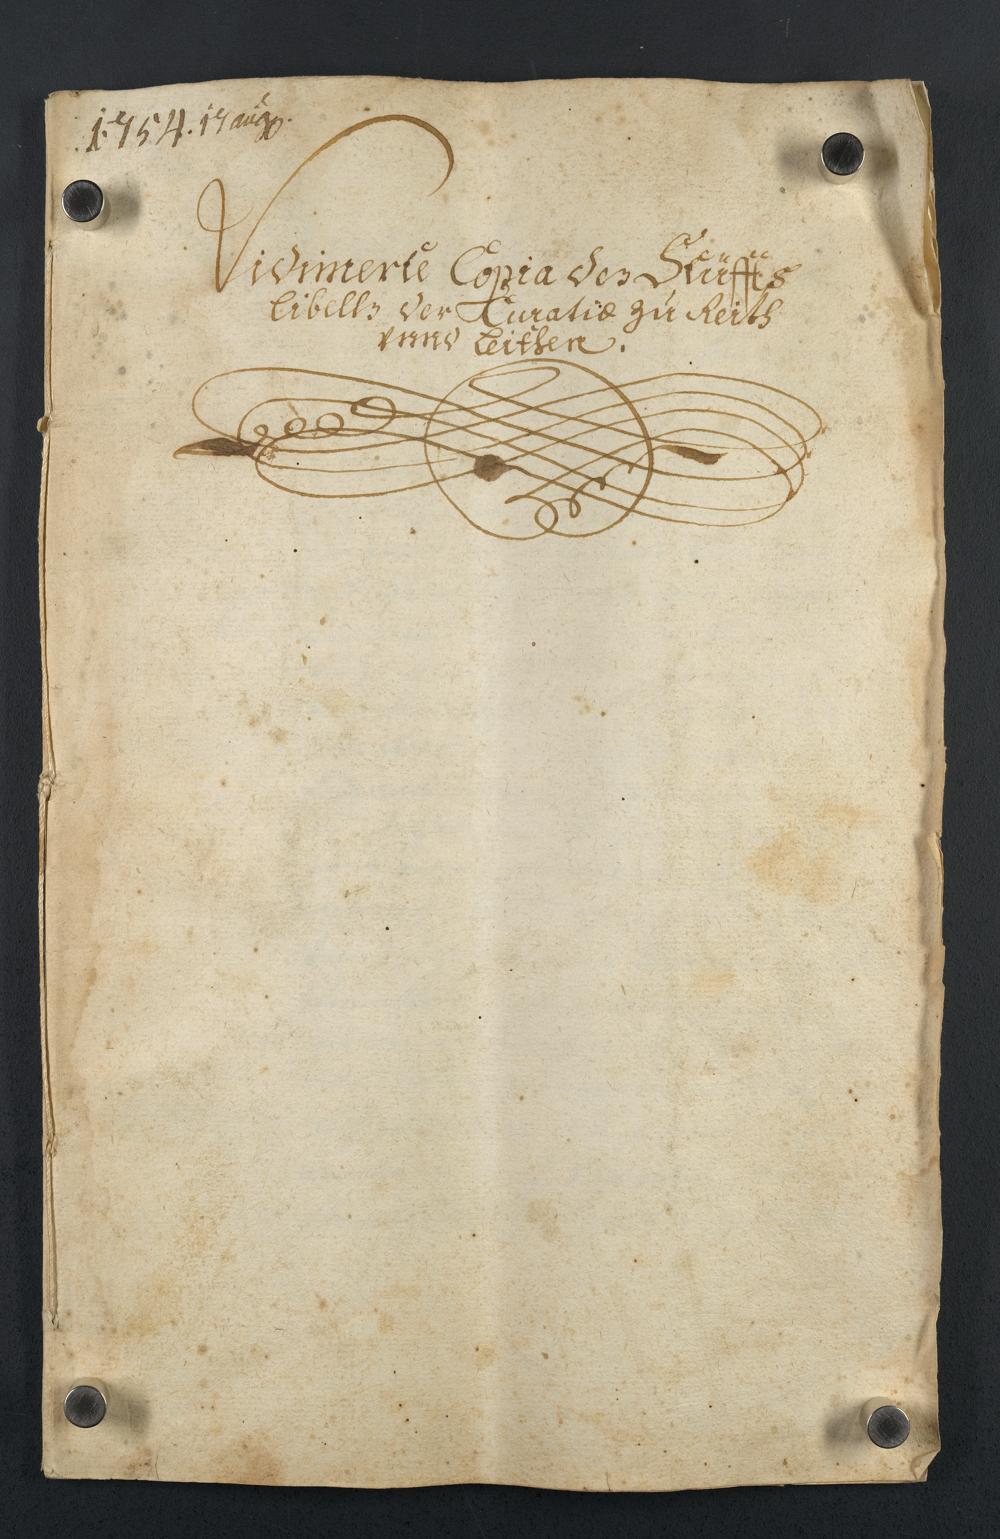 1754. 17 aug.
Vidimerte Copia des Stüffts
Libells der Curatiæ zu Reith
vnnd Leithen.